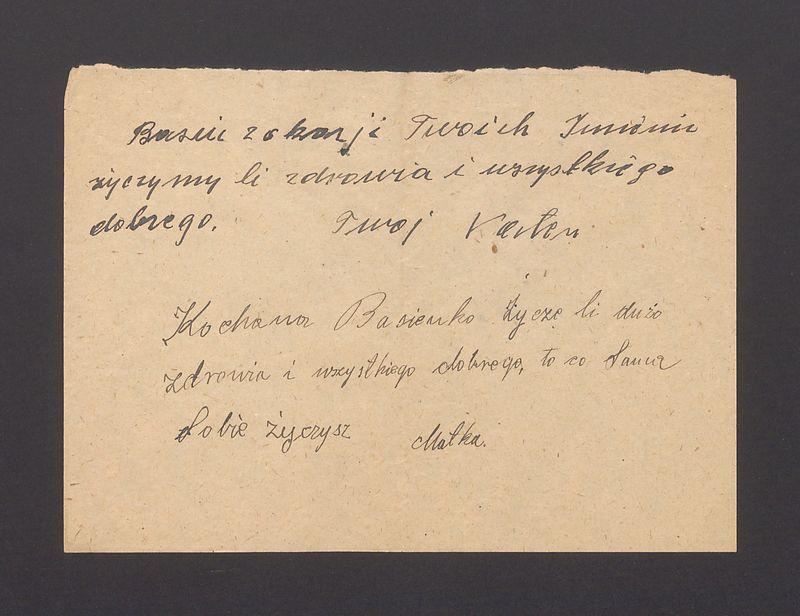 Basiu z okazji Twoich Imienin
życzymy Ci zdrowia i wszystkiego
dobrego. Twoj
Kochana Basieńko Życzę Ci dużo
zdrowia i wszystkiego dobrego, to co Sama
Sobie życzysz Matka.